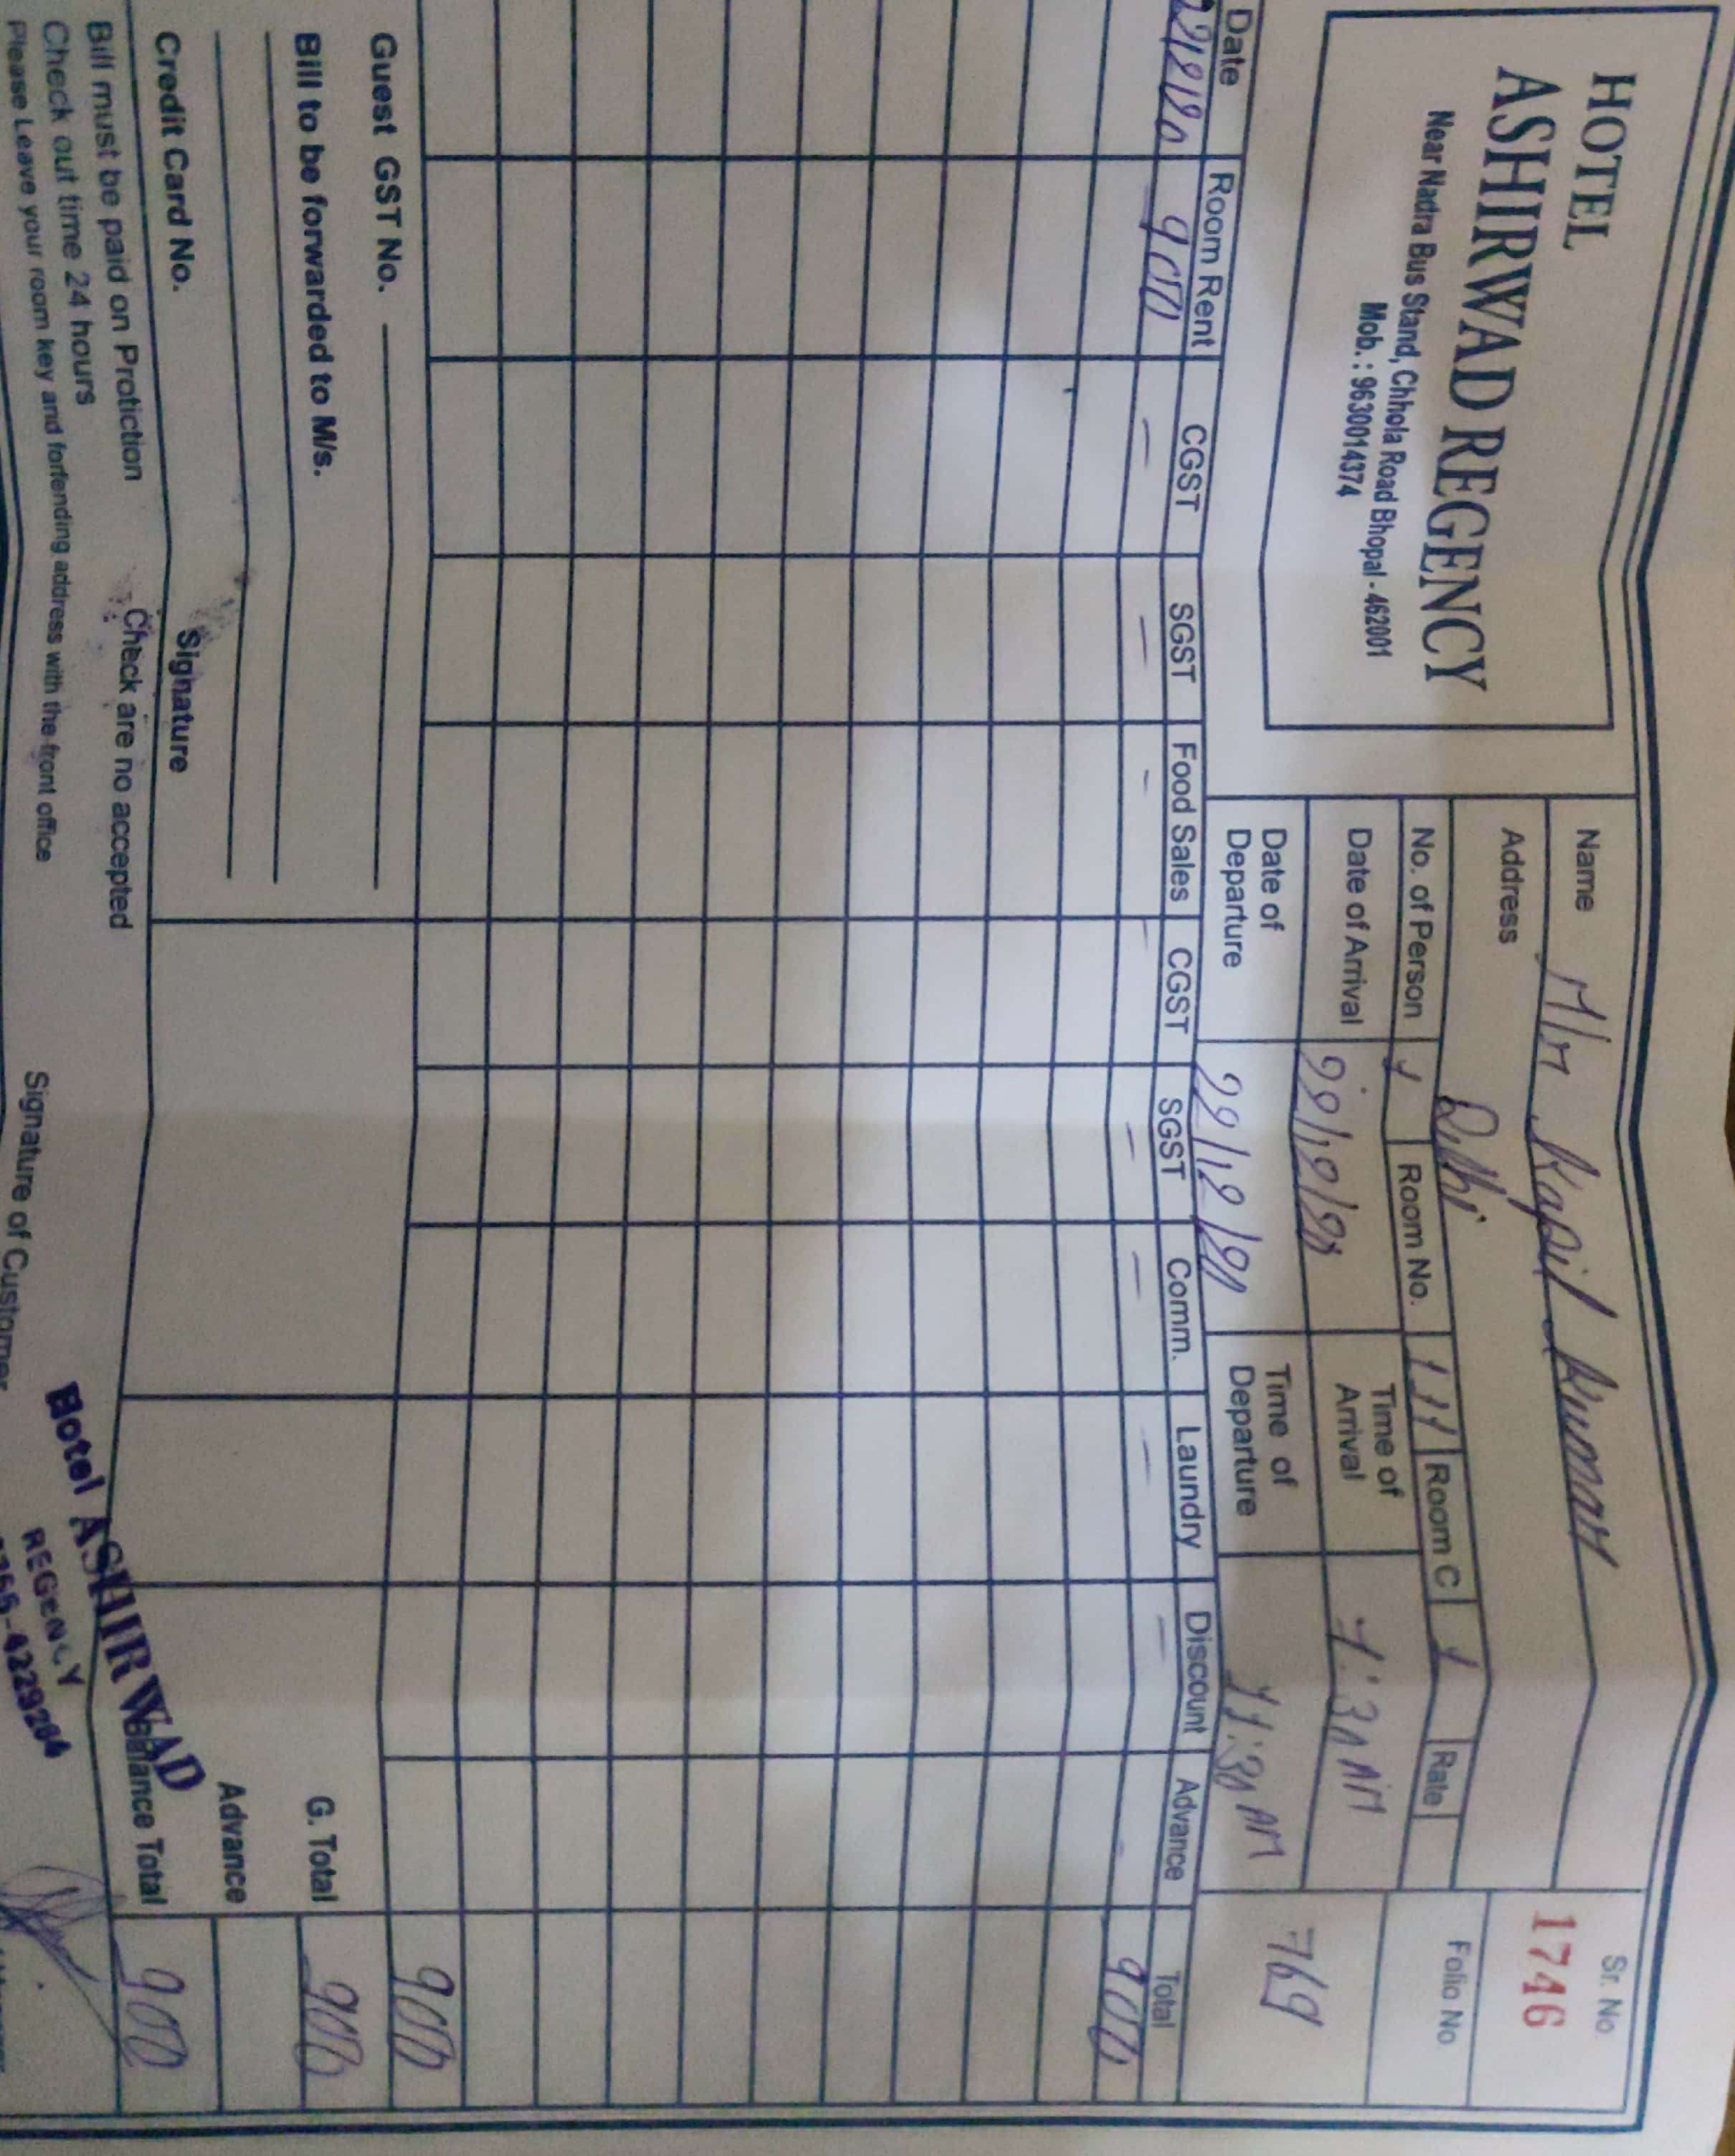 HOTEL
ASHIRWAD REGENCY
Near Nadra Bus Stand, Chhola Road Bhopal - 462001
Mob. : 9630014374
Name M/r Kapil Kumar
Address Delhi
No. of Person 1 Room No. 111 Room C 1 Rate
Date of Arrival 22/12/20 Time of Arrival 1:30 AM
Date of Departure 22/12/20 Time of Departure 11:30 AM
Sr. No.
1746
Folio No
769
Date Room Rent CGST SGST Food Sales CGST SGST Comm. Laundry Discount Advance Total
900 — — — — — — — — 900
900
Guest GST No.
G. Total 900
Bill to be forwarded to M/s.
Advance
Credit Card No. Signature
Balance Total 900
Bill must be paid on Protiction Check are no accepted
Check out time 24 hours
Please Leave your room key and forfending address with the front office
Signature of Customer
Hotel ASHIRWAD
REGENCY
-4229264